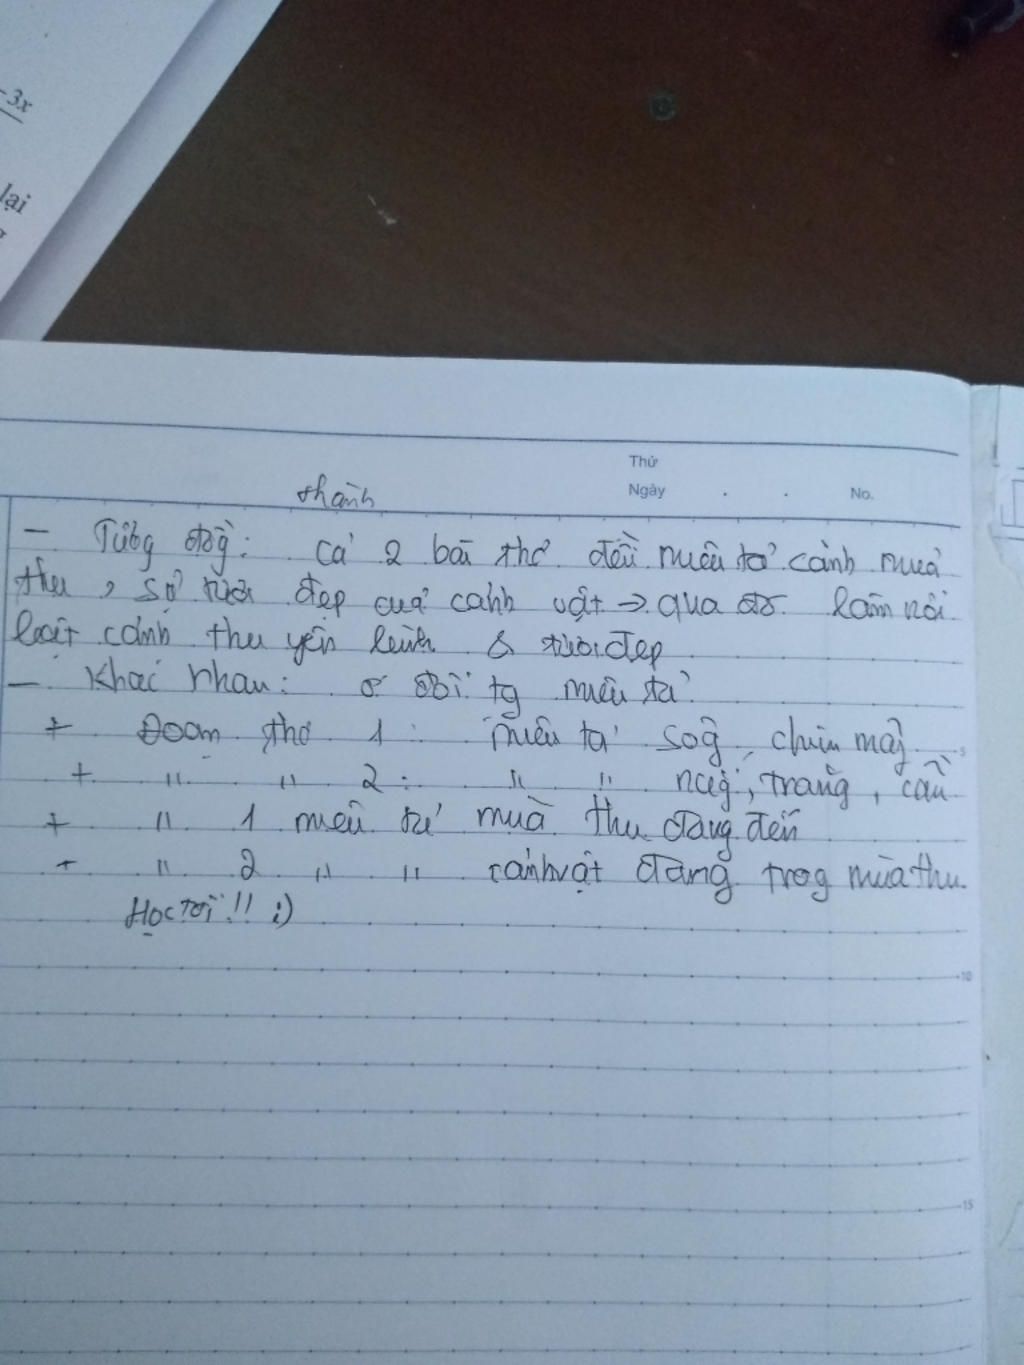 -3x
lại
Thứ
Ngày . . No.
thành
- Tương đồg: Cả 2 bài thơ đều miêu tả cảnh mùa
thu, sự tươi đẹp của cảnh vật → qua đó làm nổi
bật cảnh thu yên bình & tươi đẹp
- Khác nhau: ở đối tg miêu tả
+ Đoạn thơ 1: miêu tả sôg, chim, mây 5
+ " " 2: " " núi, trăng,
+ " 1 miêu tả mùa thu đang đến
+ " 2 " " cảnh vật đang trog mùa thu.
Học tốt!! :)
10
15